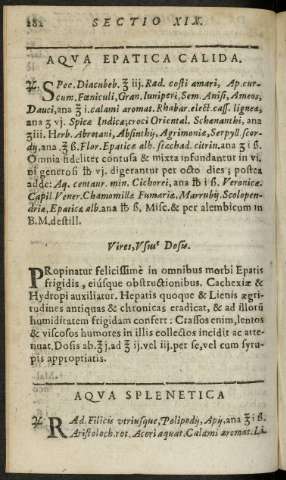 182 SECTIO XIX.
AQVA EPATICA CALIDA.
℞. SPec. Diacubeb. ʒ iij. Rad. costi amari, Ap. cur-
cum. Fœniculi, Gran. Iuniperi, Sem. Anisi, Ameos,
Dauci, ana ʒ i. calami aromat. Rhabar. elect. cass. ligneæ,
ana ʒ vj. Spicæ Indicæ, croci Oriental. Schœnanthi, ana
ʒ iii. Herb. Abrotani, Absinthij, Agrimoniæ, Serpyll. scor-
dij, ana. ʒ ß. Flor. Epaticæ alb. stœchad. citrin. ana ʒ i ß.
Omnia fideliter contusa & mixta infundantur in vi.
ni generosi ℔ vj. digerantur per octo dies; postea
adde: Aq. centaur. min. Cichorei, ana ℔ i ß. Veronicæ.
Capil Vener. Chamomillæ Fumariæ. Marrubij. Scolopen-
driæ, Epaticæ alb. ana ℔ ß. Misc. & per alembicum in
B.M. destill.
Vires, Vsus Dosis.
PRopinatur felicissimè in omnibus morbi Epatis
frigidis, eiúsque obstructionibus. Cachexiæ &
Hydropi auxiliatur. Hepatis quoque & Lienis ægri-
tudines antiquas & chronicas eradicat, & ad illorũ
humiditatem frigidam confert: Crassos enim, lentos
& viscosos humores in illis collectos incidit ac atte-
nuat. Dosis ab. ʒ j. ad ʒ ij. vel iij. per se, vel cum syru-
pis appropriatis.
AQVA SPLENETICA
℞ RAd. Filicis vtriusque, Polipodij, Apij, ana ʒ i ß.
Aristoloch. rot. Acori aquat. Calami aromat. Li.